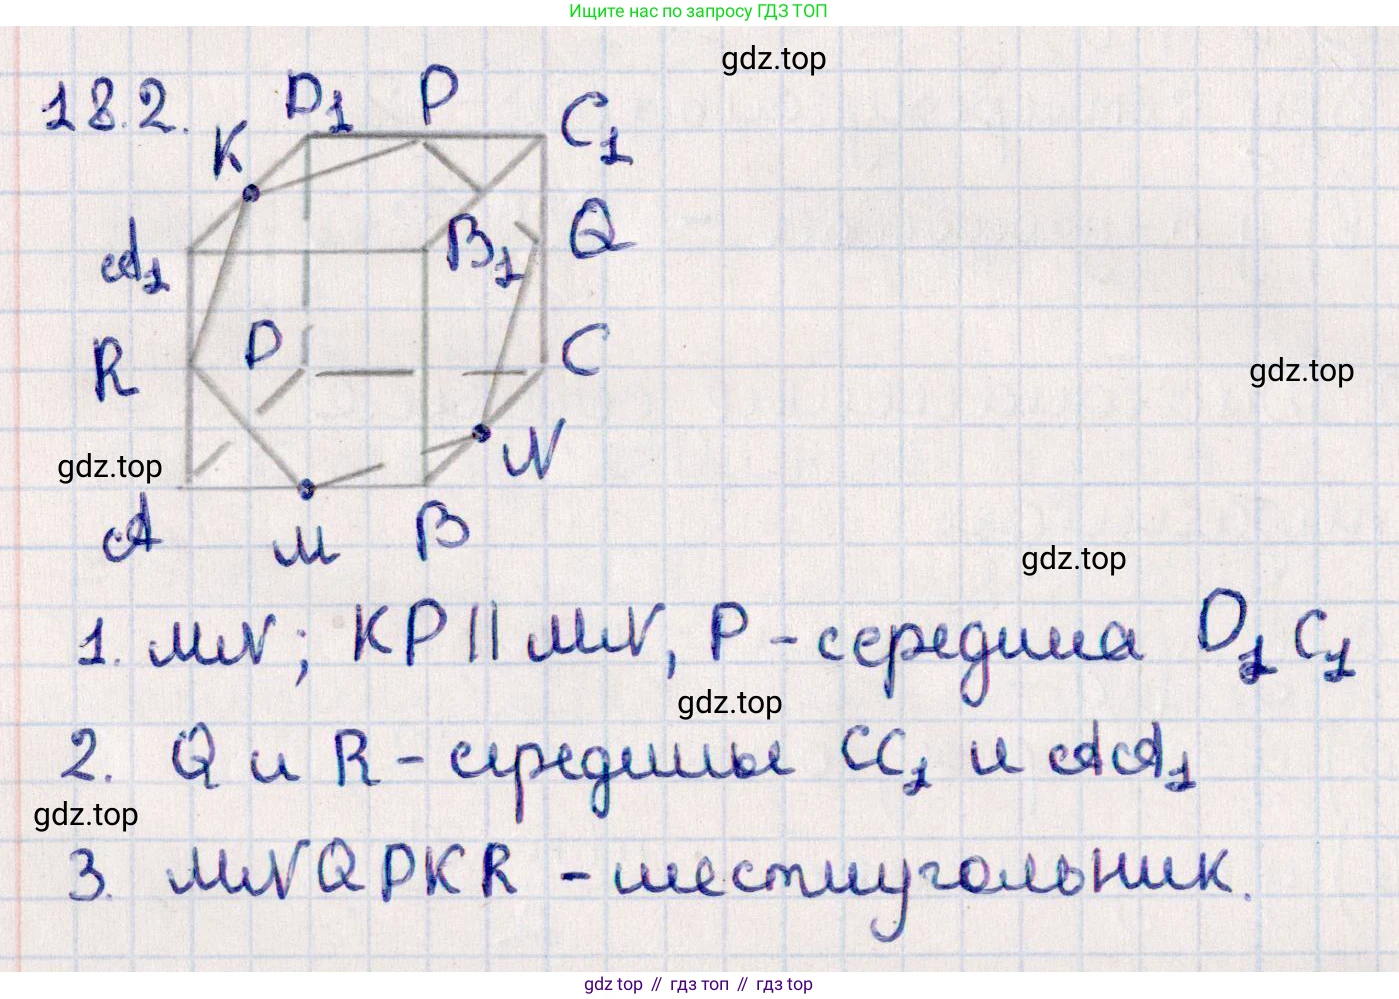 Ищите нас по запросу ГДЗ ТОП
gdz.top
18.2.
D₁ P C₁
K
A₁ B₁ Q
R D C
gdz.top
gdz.top
N
A M B
gdz.top
1. MN; KP || MN, P - середина D₁C₁
gdz.top
2. Q и R - середины CC₁ и AA₁
gdz.top
3. MNQPKR - шестиугольник.
gdz.top // гдз топ // гдз top